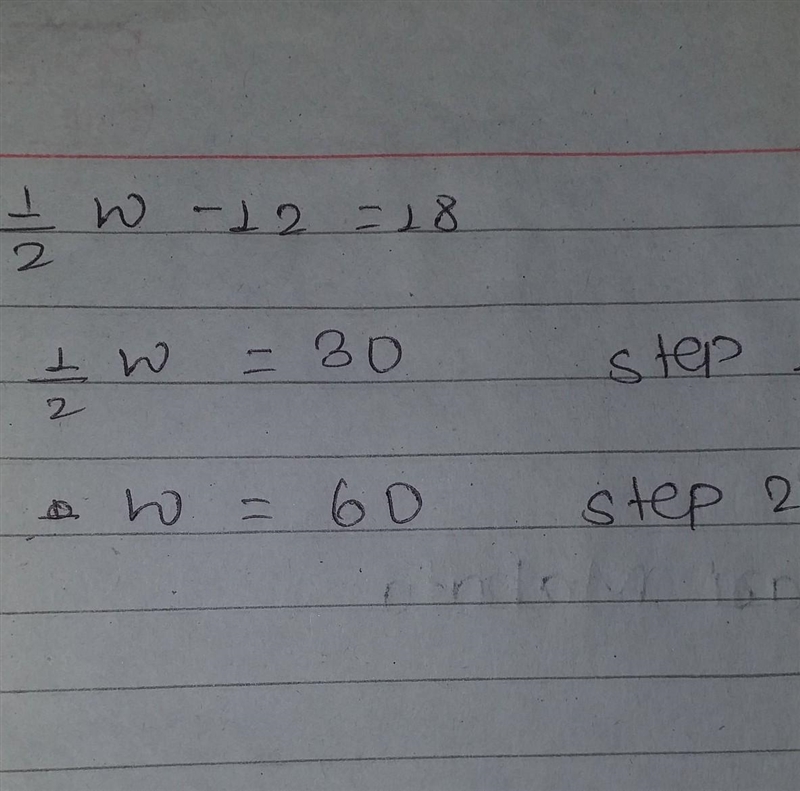 1/2 W - 12 = 18
1/2 W = 30 step
W = 60 step 2